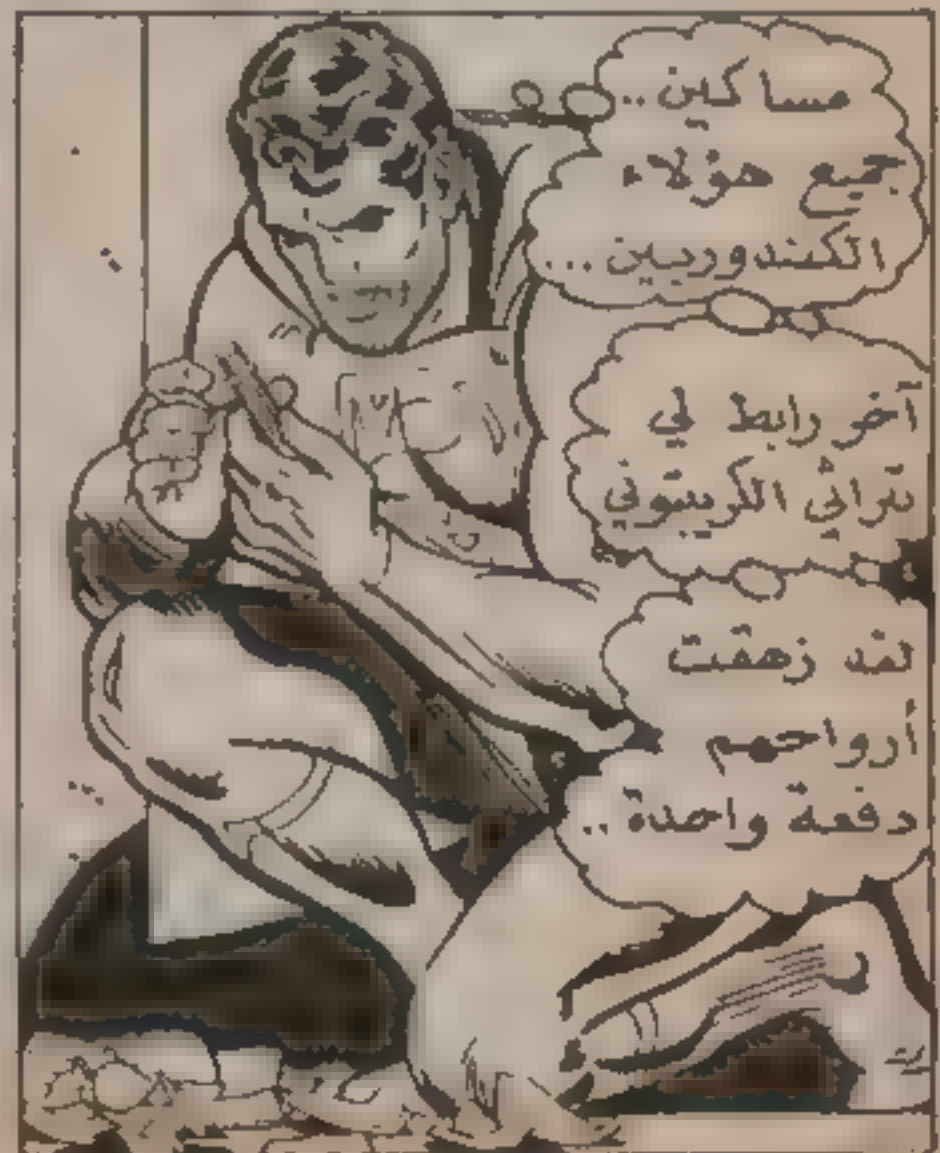 مساكين..
جميع هؤلاء
الكندوريين...
آخر رابط لي
بتراثي الكريبتوني
لقد زهقت
أرواحهم
دفعة واحدة..